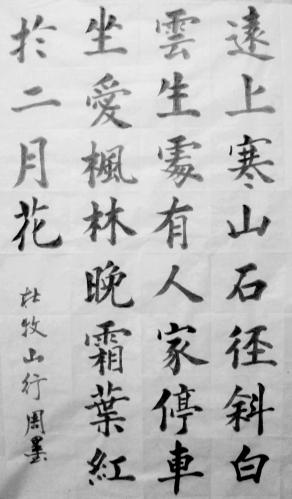 遠上寒山石径斜白
雲生處有人家停車
坐愛楓林晚霜葉紅
於二月花
杜牧山行周墨